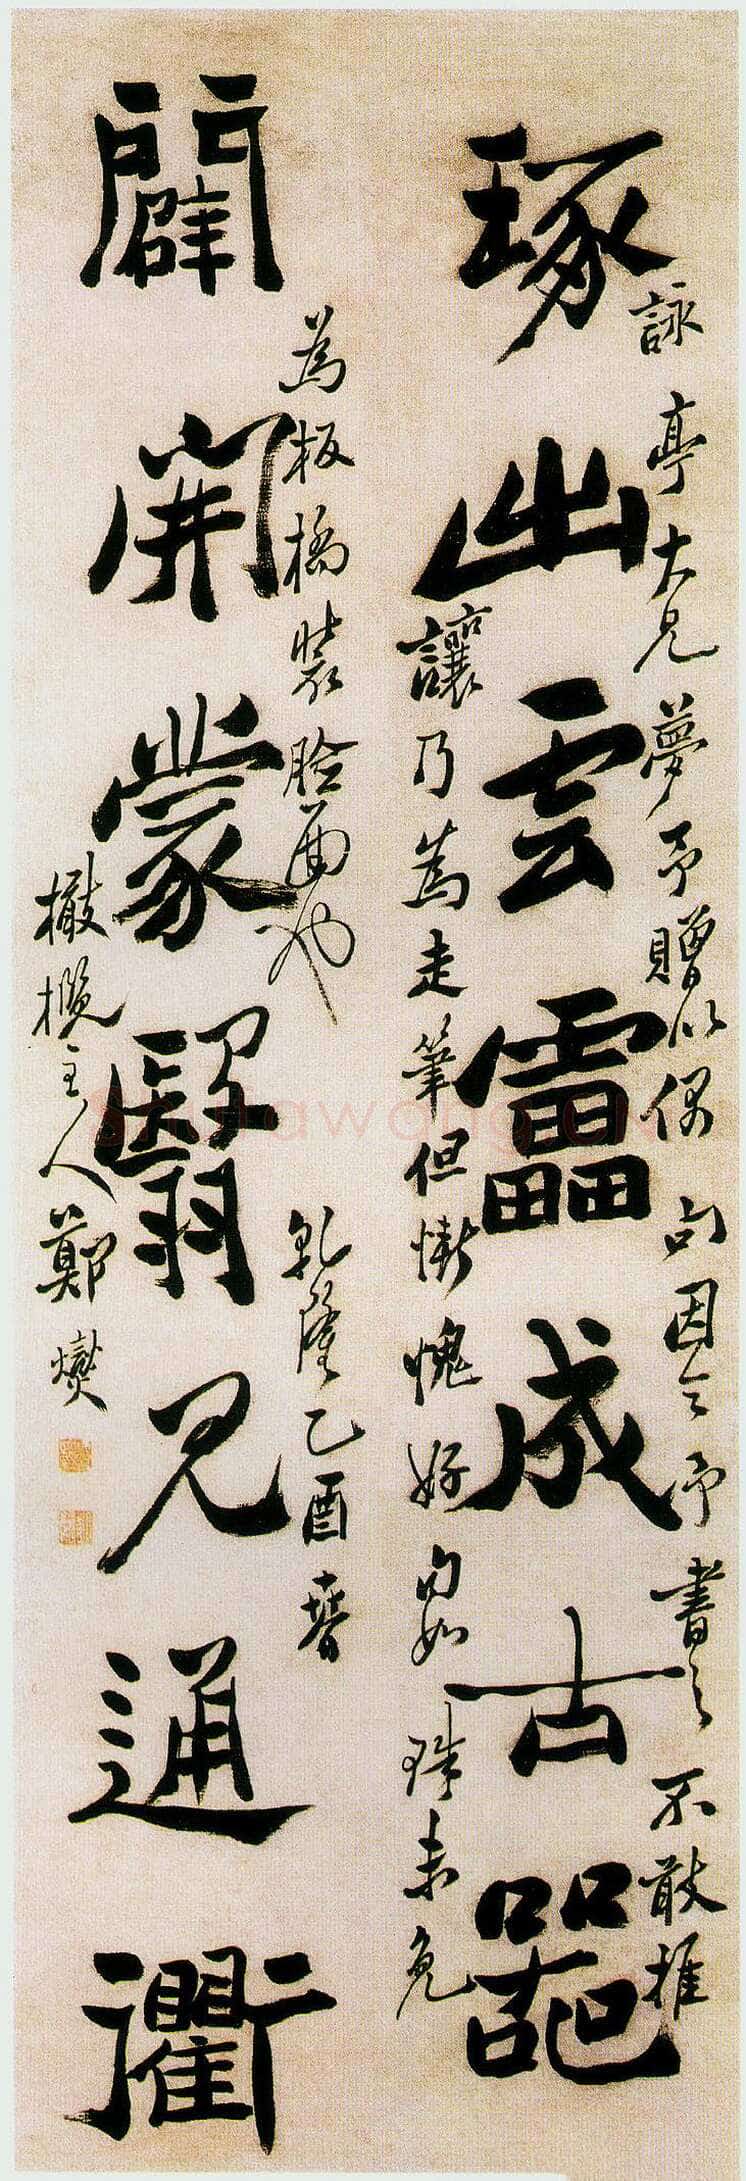 琢出雲雷成古器
詠亭大兄夢予贈以偶句因令予書之不敢推
讓乃為走筆但慚愧好句如珠未免
闢開蒙翳見通衢
為板橋裝臉面也
乾隆乙酉春
橄欖主人鄭燮